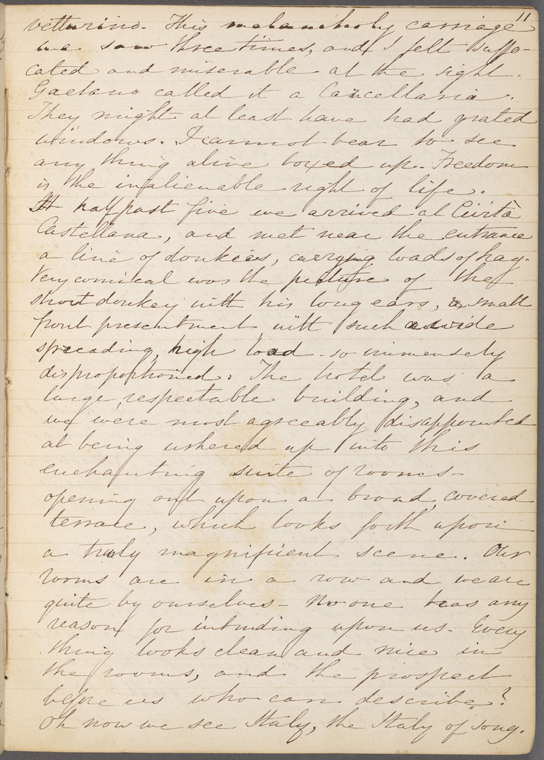 11
vetturino. This melancholy carriage
we saw three times, and I felt suffo-
cated and miserable at the sight.
Gaetano called it a Cancellaria.
They might at least have had grated
windows. I cannot bear to see
any thing alive boxed up. Freedom
is the inalienable right of life.
At half past five we arrived at Cività
Castellana, and met near the entrance
a line of donkies, carrying loads of hay.
Very comical was the picture of the
short donkey with his long ears, & small
front presentment with such a wide
spreading, high load - so immensely
disproportioned. The hotel was a
large, respectable building, and
we were most agreeably disappointed
at being ushered up into this
enchanting suite of rooms
opening out upon a broad, covered
terrace, which looks forth upon
a truly magnificent scene. Our
rooms are in a row and we are
quite by ourselves - No one has any
reason for intruding upon us. Every
thing looks clean and nice in
the rooms, and the prospect
before us who can describe?
Oh now we see Italy, the Italy of song.